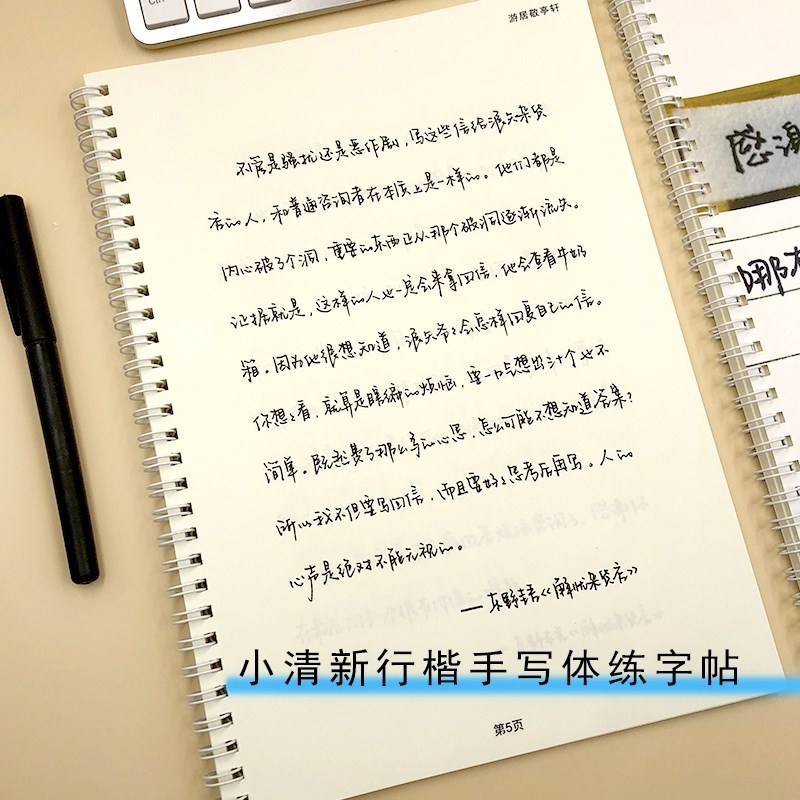 游居敬亭轩
不管是骚扰还是恶作剧，写这些信给浪矢杂货
店的人，和普通咨询者在本质上是一样的。他们都是
内心破了个洞，重要的东西正从那个破洞逐渐流失。
证据就是，这样的人也一定会来拿回信，他会查看牛奶
箱。因为他很想知道，浪矢爷爷会怎样回复自己的信。
你想想看，就算是瞎编的烦恼，要一口气想出三十个也不
简单。既然费了那么多的心思，怎么可能不想知道答案？
所以我不但要写回信，而且要好好思考后再写。人的
心声是绝对不能无视的。
——东野圭吾《解忧杂货店》
小清新行楷手写体练字帖
第5页
Ctrl
感
哪